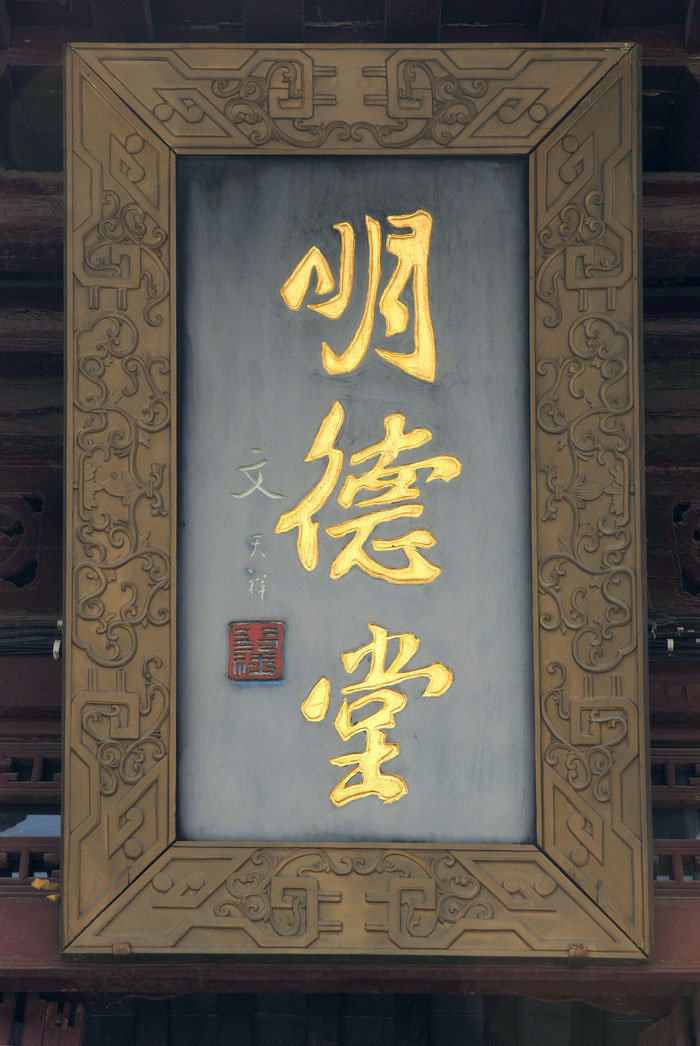 明德堂
文天祥